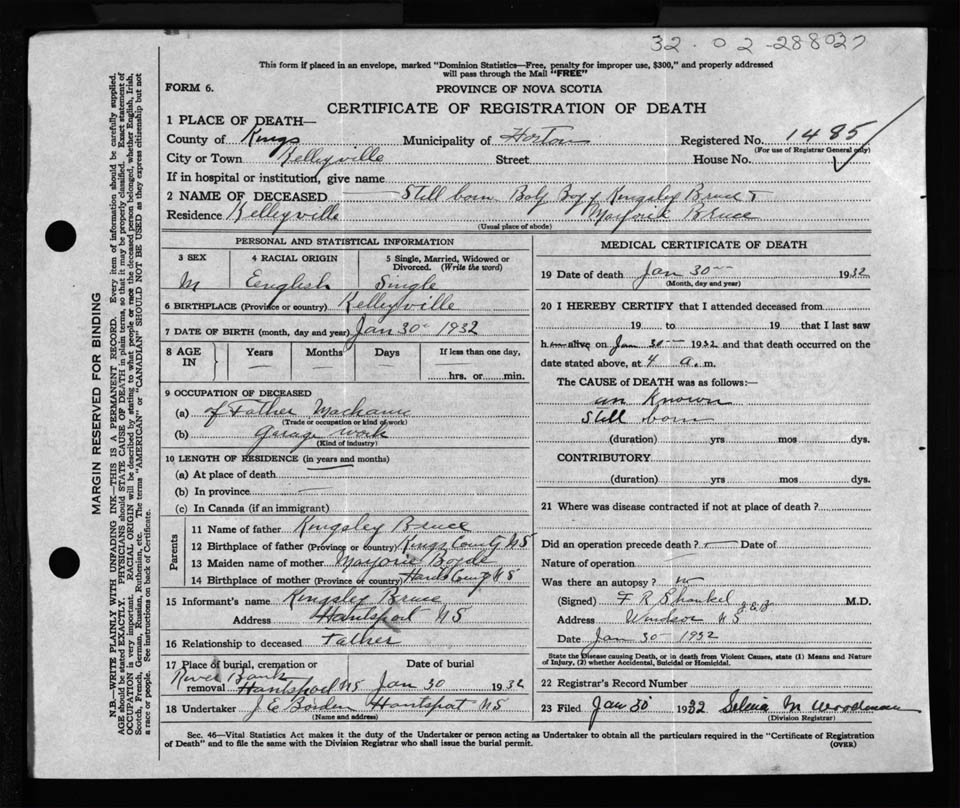 32-02-288027
This form if placed in an envelope, marked "Dominion Statistics—Free, penalty for improper use, $300," and properly addressed
will pass through the Mail "FREE"
FORM 6.
PROVINCE OF NOVA SCOTIA
CERTIFICATE OF REGISTRATION OF DEATH
1 PLACE OF DEATH—
County of Kings Municipality of Horton Registered No. 1485
(For use of Registrar General only)
City or Town Kelleyville Street House No.
If in hospital or institution, give name
2 NAME OF DECEASED Still born Boy of Kingsley Bruce &
Residence Kelleyville Marjorie Bruce
(Usual place of abode)
PERSONAL AND STATISTICAL INFORMATION
3 SEX 4 RACIAL ORIGIN 5 Single, Married, Widowed or Divorced. (Write the word)
M Eenglish Single
6 BIRTHPLACE (Province or country) Kelleyville
7 DATE OF BIRTH (month, day and year) Jan 30 1932
8 AGE IN Years Months Days If less than one day,
hrs. or min.
9 OCCUPATION OF DECEASED
(a) of Father Machanic
(Trade or occupation or kind of work)
(b) Garage work
(Kind of industry)
10 LENGTH OF RESIDENCE (in years and months)
(a) At place of death
(b) In province
(c) In Canada (if an immigrant)
Parents
11 Name of father Kingsley Bruce
12 Birthplace of father (Province or country) Kings County N S
13 Maiden name of mother Marjorie
14 Birthplace of mother (Province or country) Hants County N S
15 Informant's name Kingsley Bruce
Address Hantsport N S
16 Relationship to deceased Father
17 Place of burial, cremation or removal Date of burial
River Bank
Hantsport N S Jan 30 1932
18 Undertaker J. E. Borden Hantsport N S
(Name and address)
MEDICAL CERTIFICATE OF DEATH
19 Date of death Jan 30 1932
(Month, day and year)
20 I HEREBY CERTIFY that I attended deceased from
19 to 19 that I last saw
h alive on Jan 30 1932 and that death occurred on the
date stated above, at 4 a. m.
The CAUSE OF DEATH was as follows:—
un Known
Still born
(duration) yrs mos dys.
CONTRIBUTORY
(duration) yrs mos dys.
21 Where was disease contracted if not at place of death?
Did an operation precede death? Date of
Nature of operation
Was there an autopsy? no
(Signed) F R Shankel M.D.
Address Windsor N S
Date Jan 30 1932
State the Disease causing Death, or in death from Violent Causes, state (1) Means and Nature
of Injury, (2) whether Accidental, Suicidal or Homicidal.
22 Registrar's Record Number
23 Filed Jan 30 1932 Selina M Woodman
(Division Registrar)
Sec. 46—Vital Statistics Act makes it the duty of the Undertaker or person acting as Undertaker to obtain all the particulars required in the "Certificate of Registration
of Death" and to file the same with the Division Registrar who shall issue the burial permit.
(OVER)
MARGIN RESERVED FOR BINDING
N.B.—WRITE PLAINLY WITH UNFADING INK—THIS IS A PERMANENT RECORD. Every item of information should be carefully supplied.
AGE should be stated EXACTLY. PHYSICIANS should STATE CAUSE OF DEATH in plain terms, so that it may be properly classified. Exact statement of
OCCUPATION is very important. RACIAL ORIGIN will be described by stating to what people or race the deceased person belonged, whether English, Irish,
Scotch, French, German, Russian, Ruthenian, etc. The terms "AMERICAN" or "CANADIAN" SHOULD NOT BE USED as they express citizenship but not
a race or people. See instructions on back of Certificate.